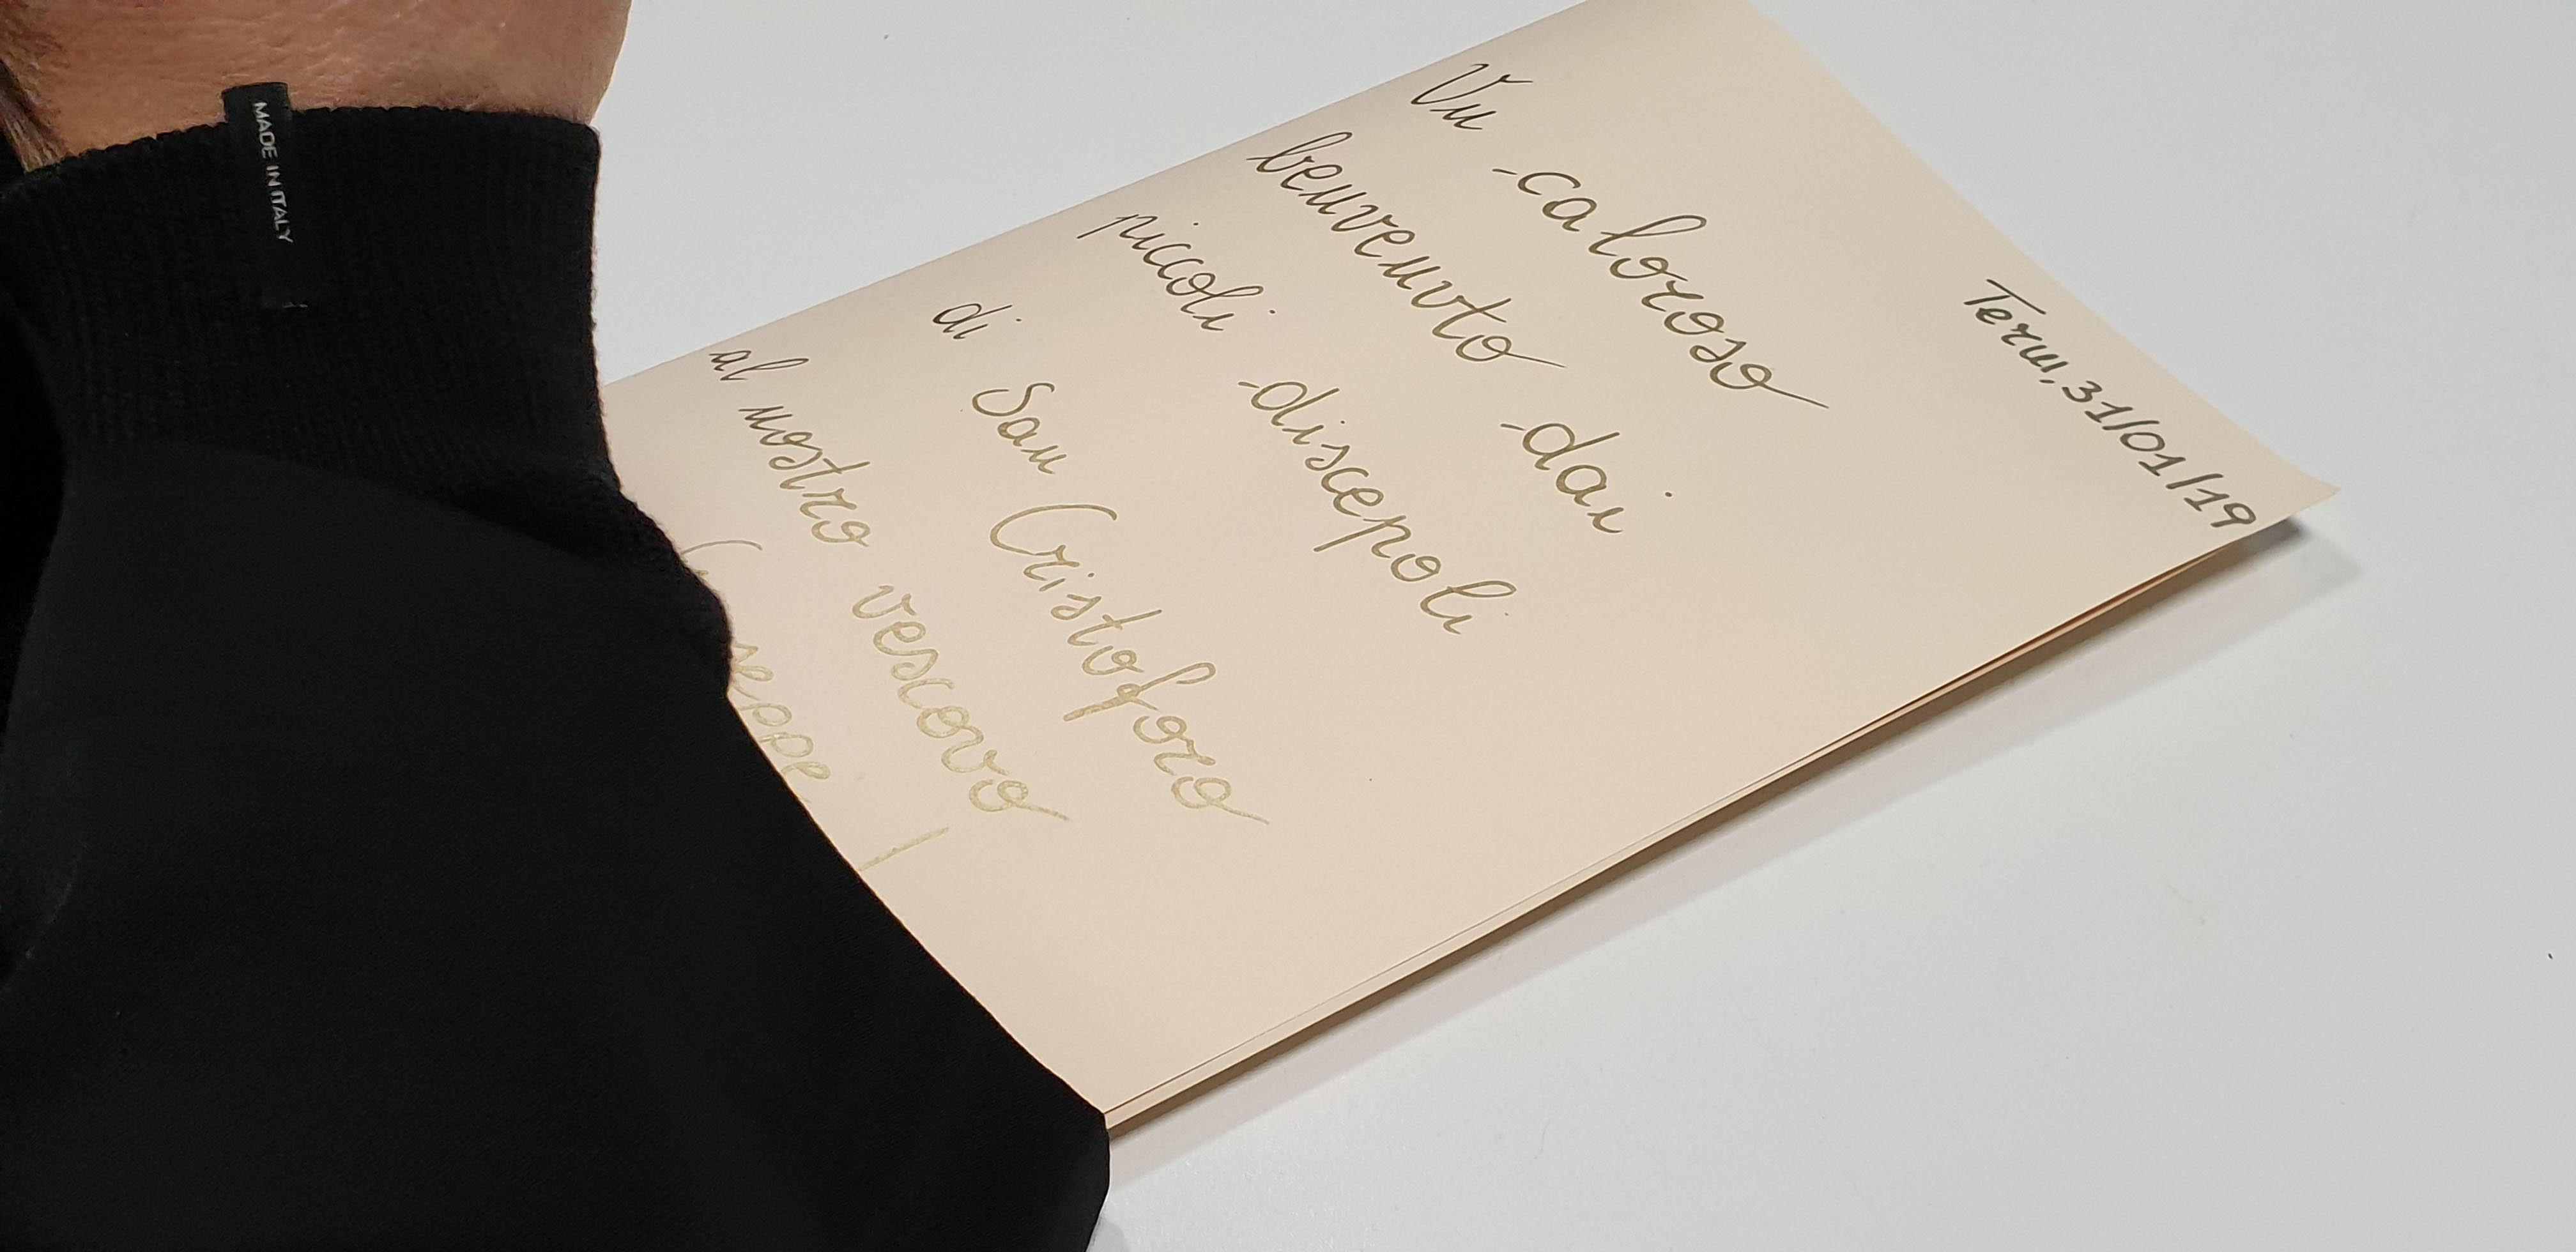 Terni, 31/01/19
Un caloroso
benvenuto dai
piccoli discepoli
di San Cristoforo
al nostro vescovo
seppe!
MADE IN ITALY